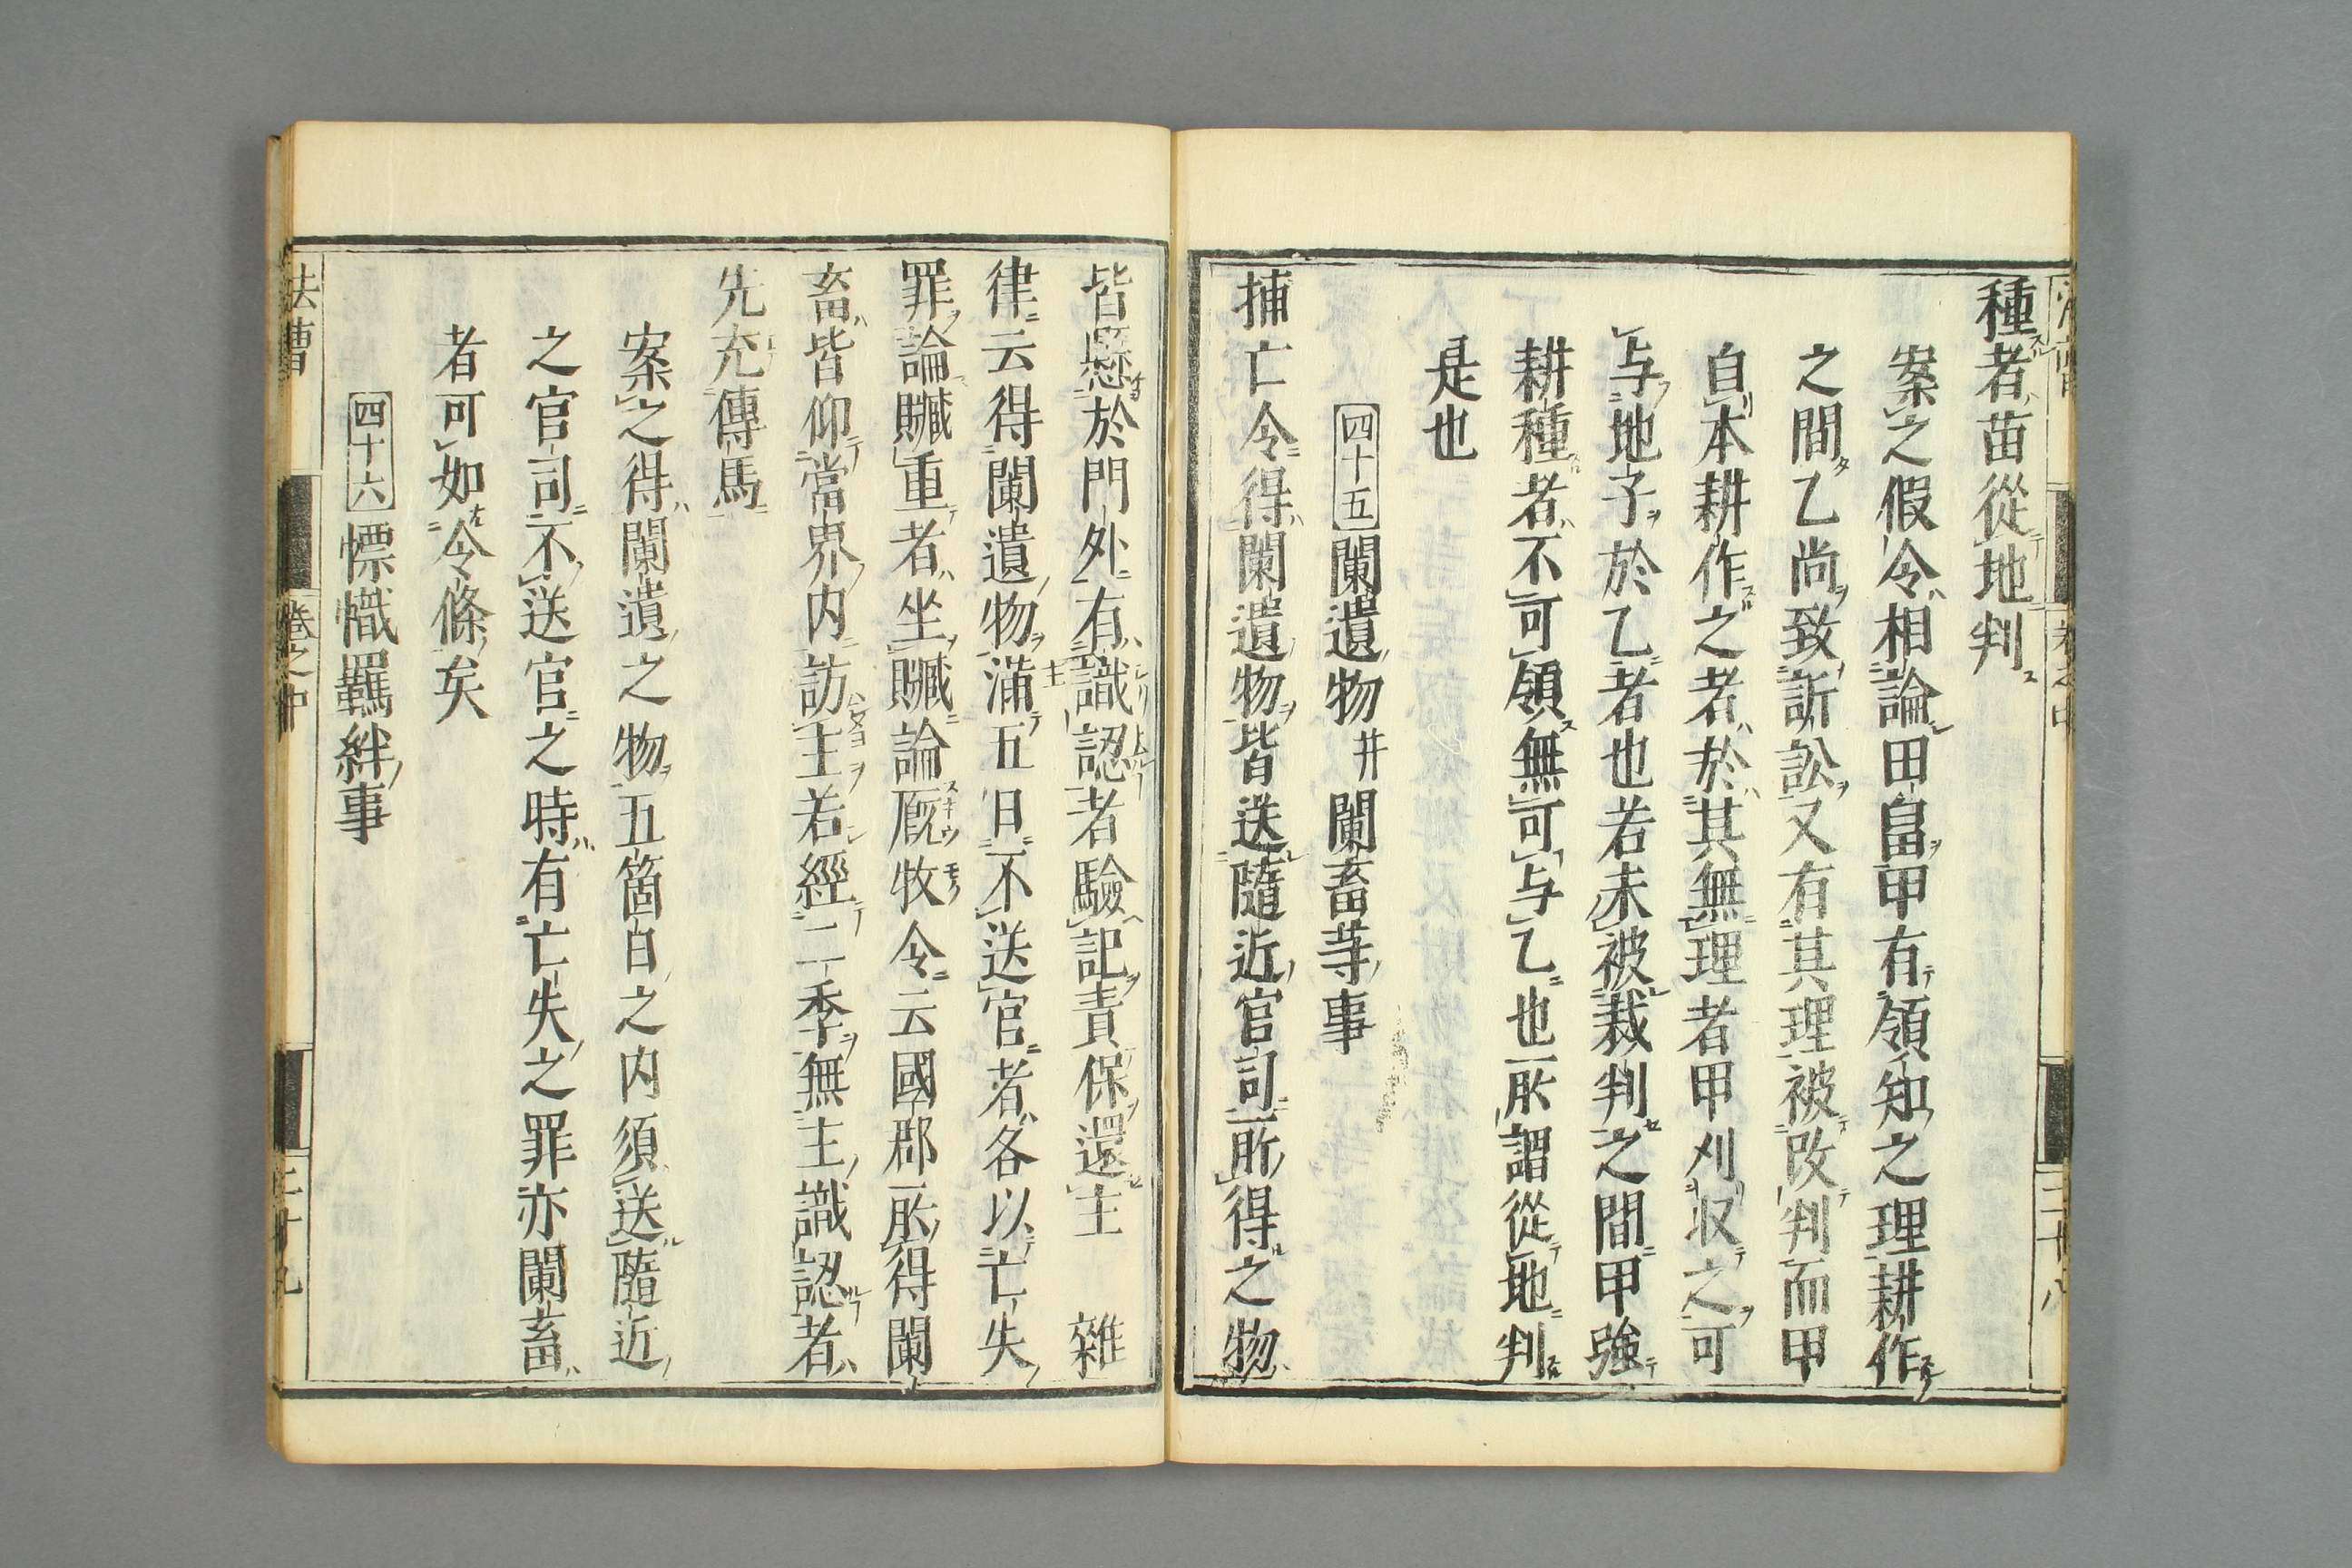 種者苗從地判
案之假令相論田畠甲有領知之理耕作
之間乙尚致訴訟又有其理被改判而甲
自本耕作之者於其無理者甲刈収之可
与地子於乙者也若未被裁判之間甲強
耕種者不可領無可与乙也所謂從地判
是也
四十五闌遺物并闌畜等事
捕亡令得闌遺物皆送隨近官司所得之物
皆懸於門外有識認者驗記責保還主 雜
律云得闌遺物滿五日不送官者各以亡失
罪論贓重者坐贓論厩牧令云國郡所得闌
畜皆仰當界内訪主若經二季無主識認者
先充傳馬
案之得闌遺之物五箇日之内須送隨近
之官司不送官之時有亡失之罪亦闌畜
者可如令條矣
四十六慓幟羈絆事
法曹 卷之中 二十九